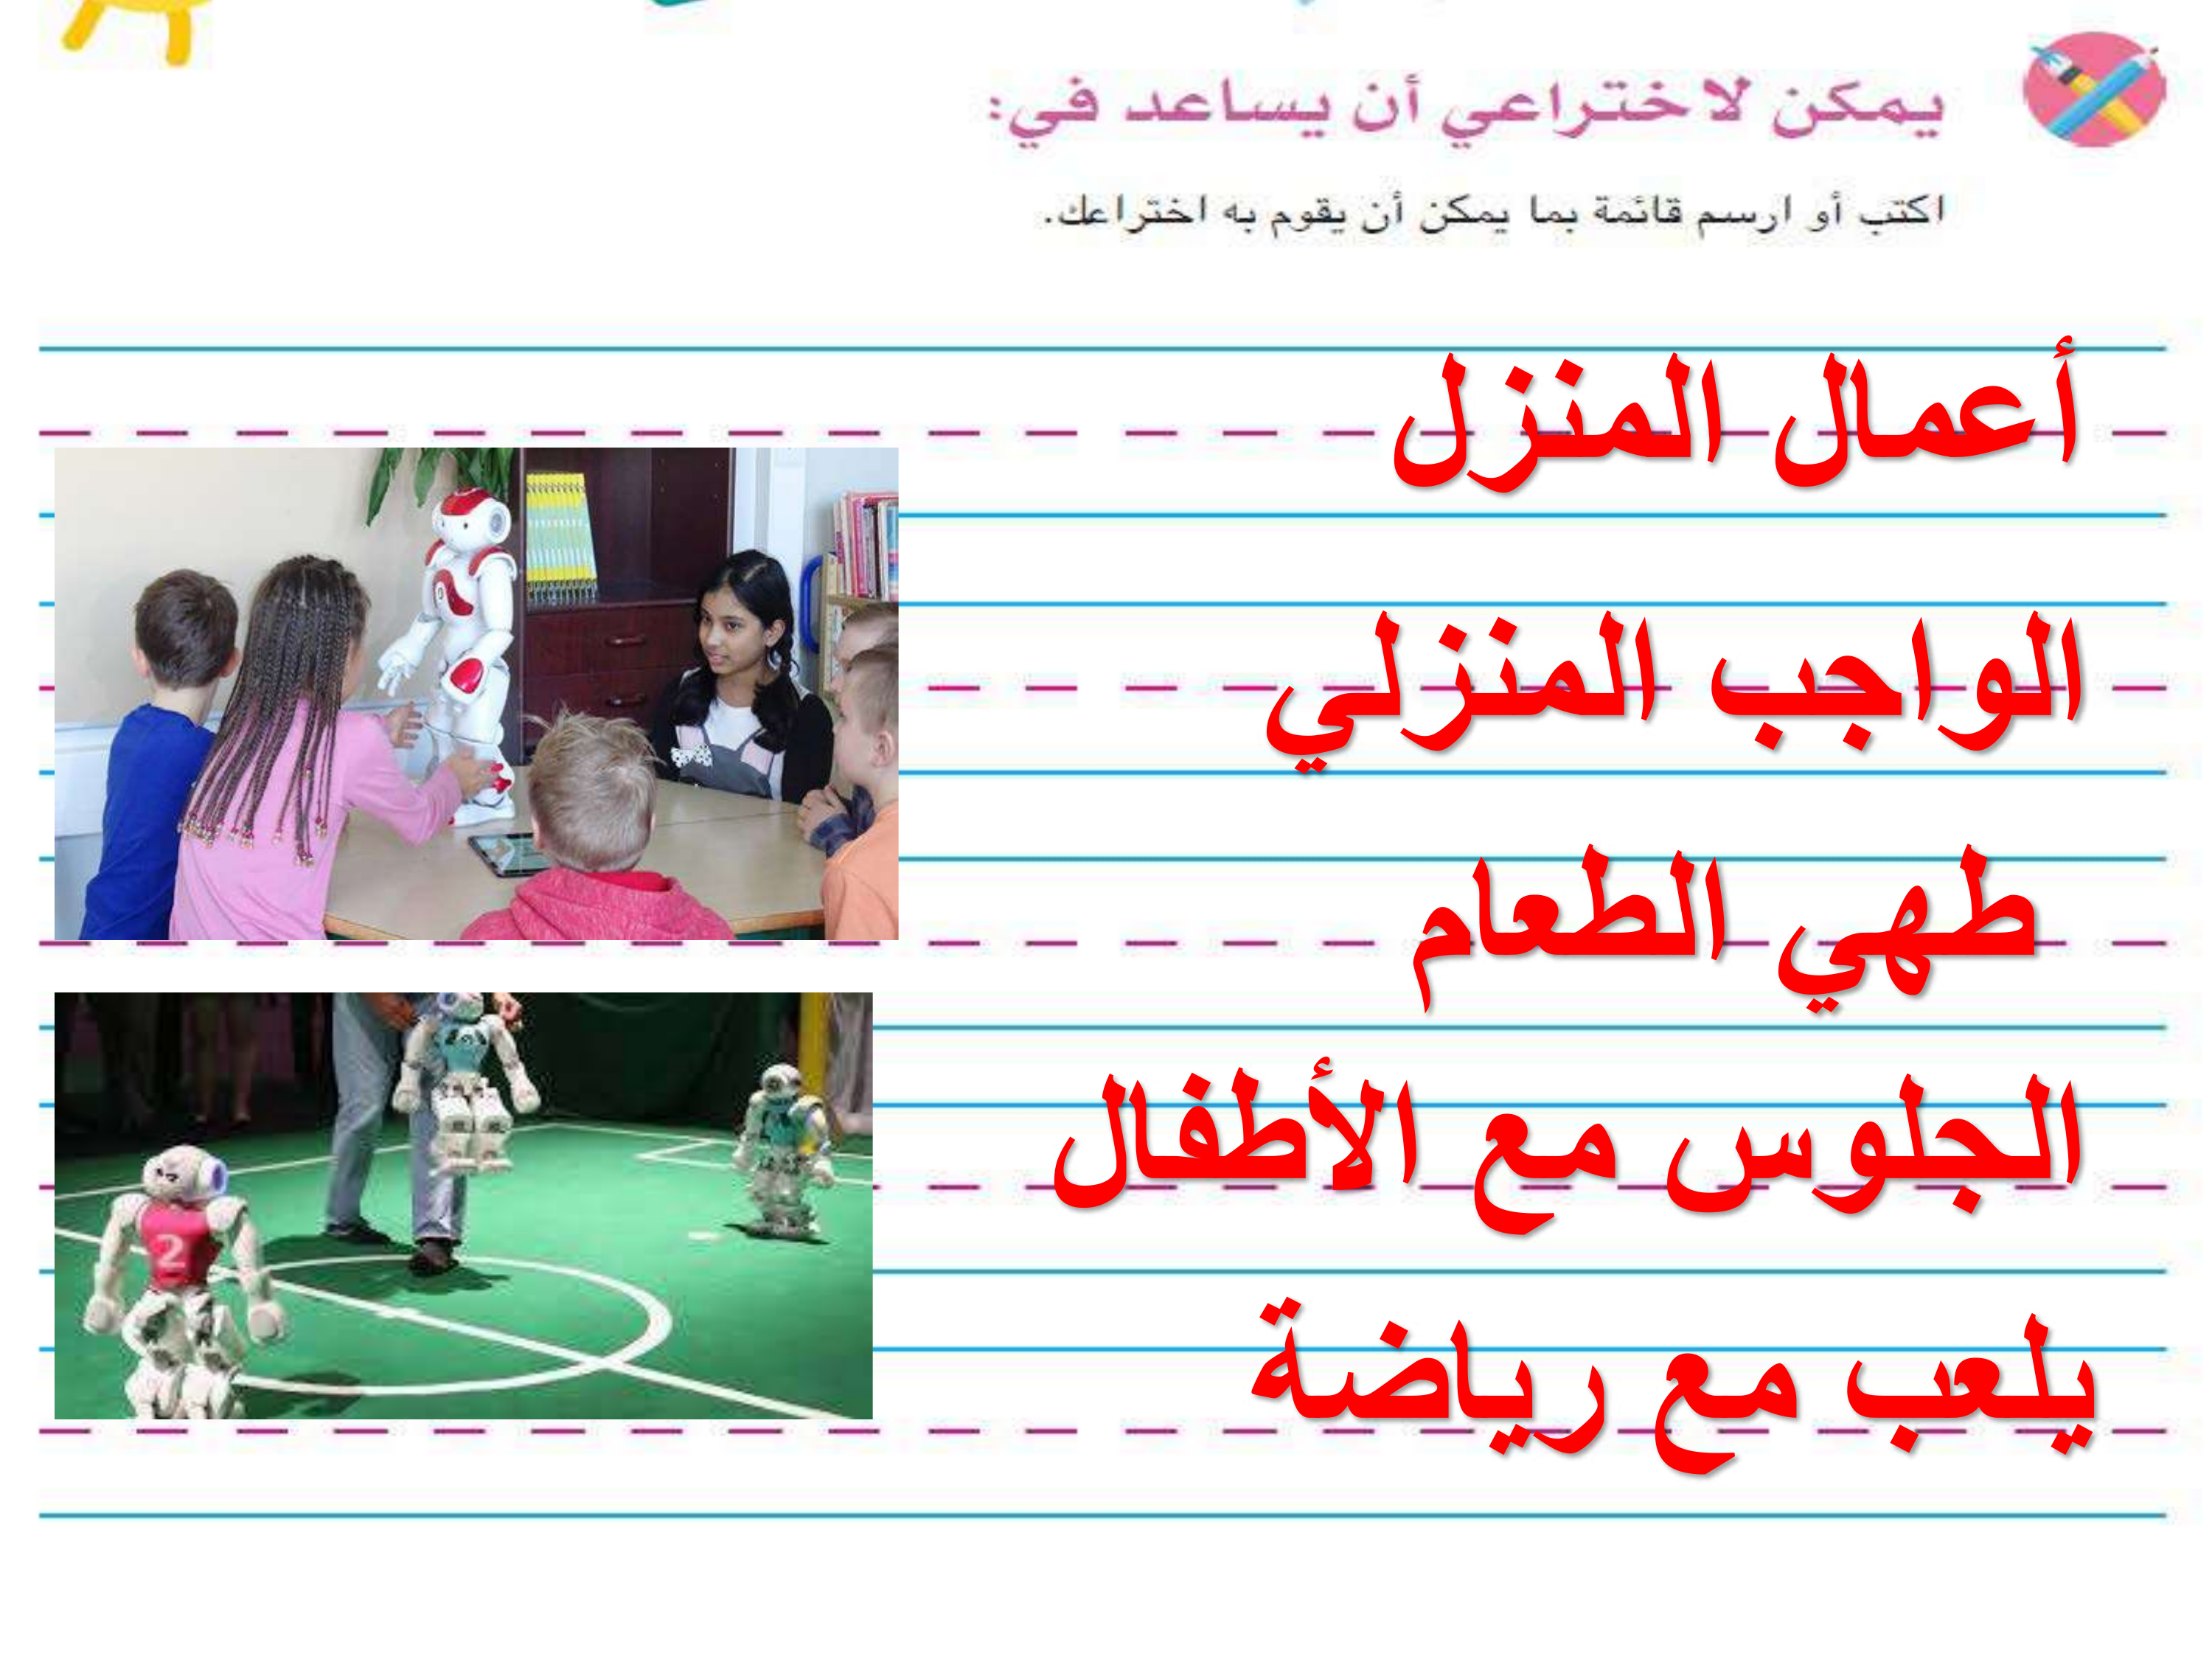 يمكن لاختراعي أن يساعد في:
اكتب أو ارسم قائمة بما يمكن أن يقوم به اختراعك.
أعمال المنزل
الواجب المنزلي
طهي الطعام
الجلوس مع الأطفال
يلعب مع رياضة
2